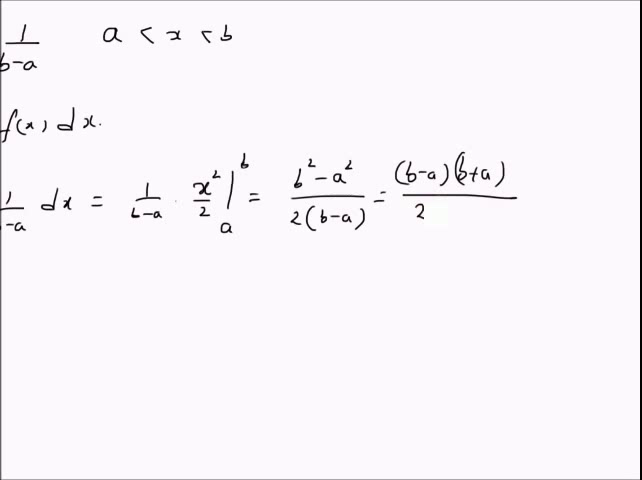 1/(b-a) a < x < b
f(x) dx.
1/(b-a) dx = 1/(b-a) · x²/2 |ₐᵇ = (b² - a²)/(2(b-a)) = (b-a)(b+a)/2